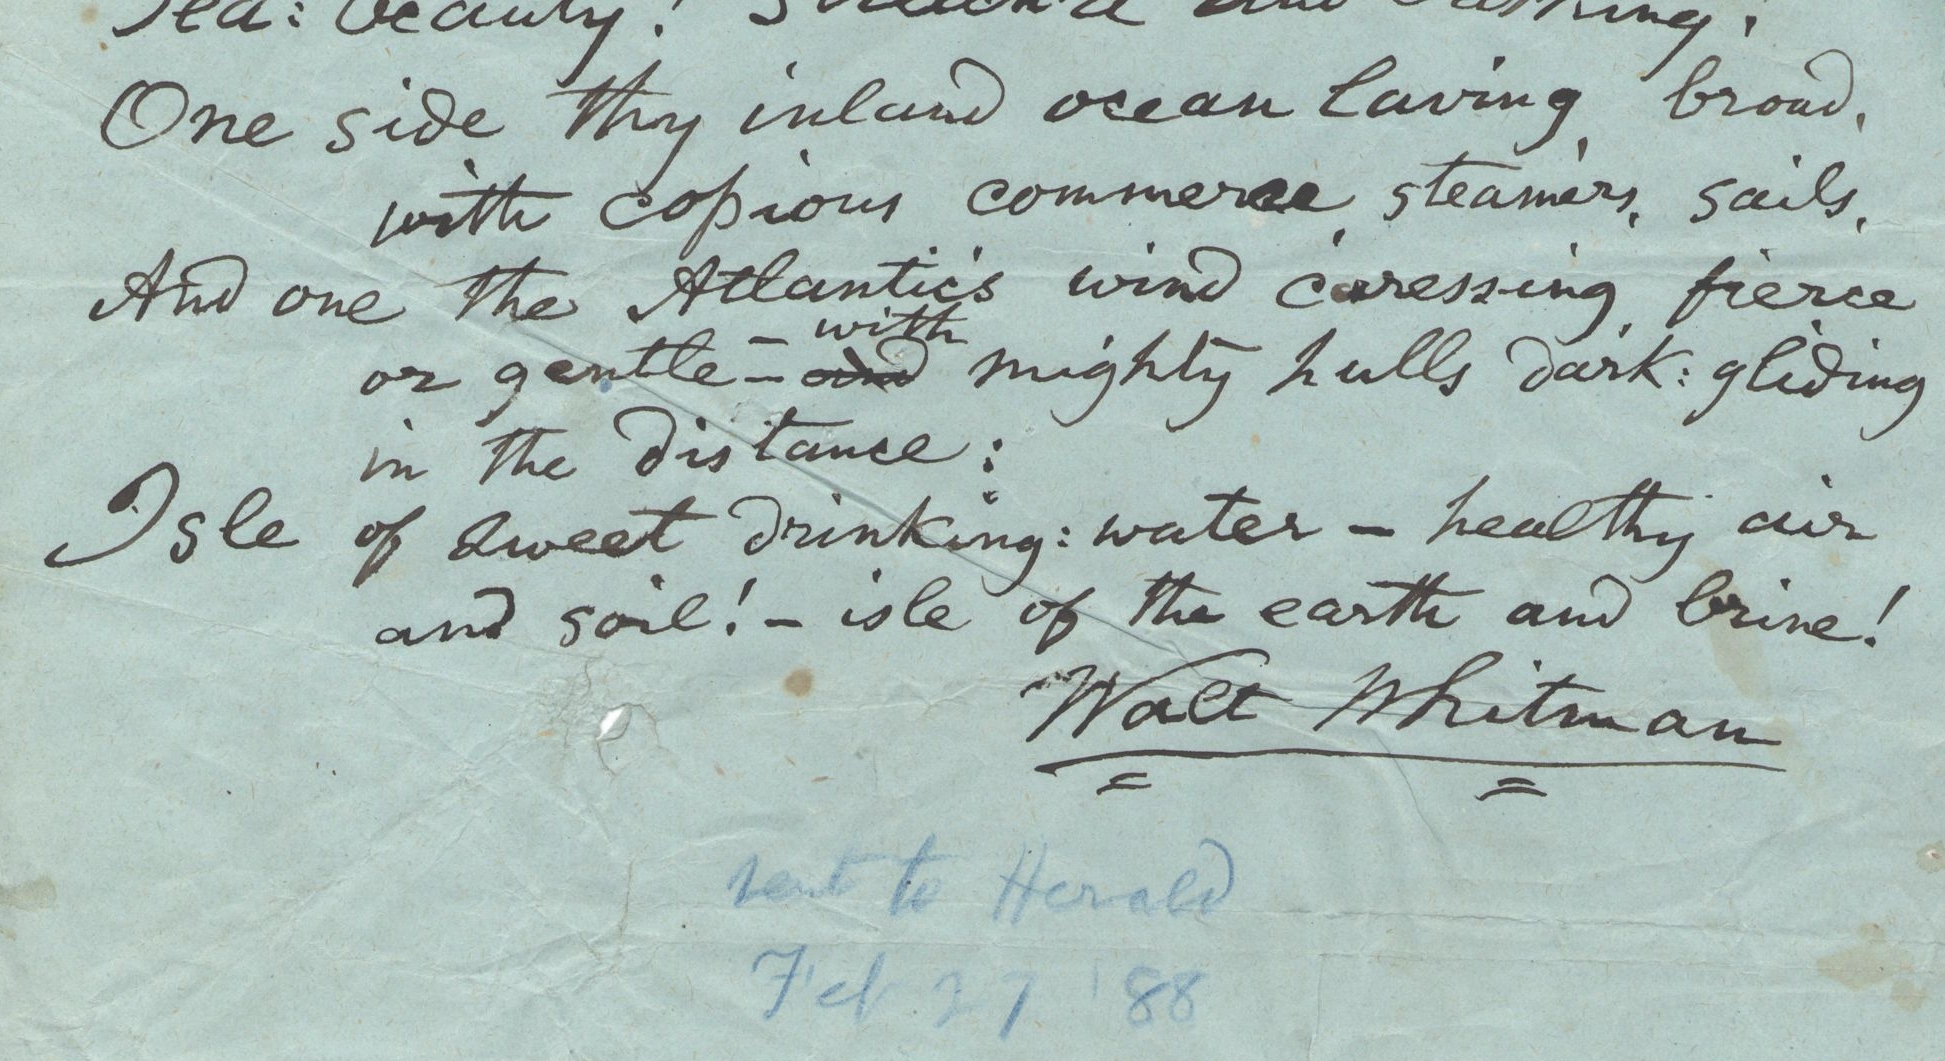 Sea: beauty! stretch'd and basking!
One side thy inland ocean laving, broad,
with copious commerce, steamers, sails,
And one the Atlantic's wind caressing, fierce
with
or gentle — and mighty hulls dark: gliding
in the distance:
Isle of sweet drinking: water — healthy air
and soil! — isle of the earth and brine!
Walt Whitman
sent to Herald
Feb 27 '88